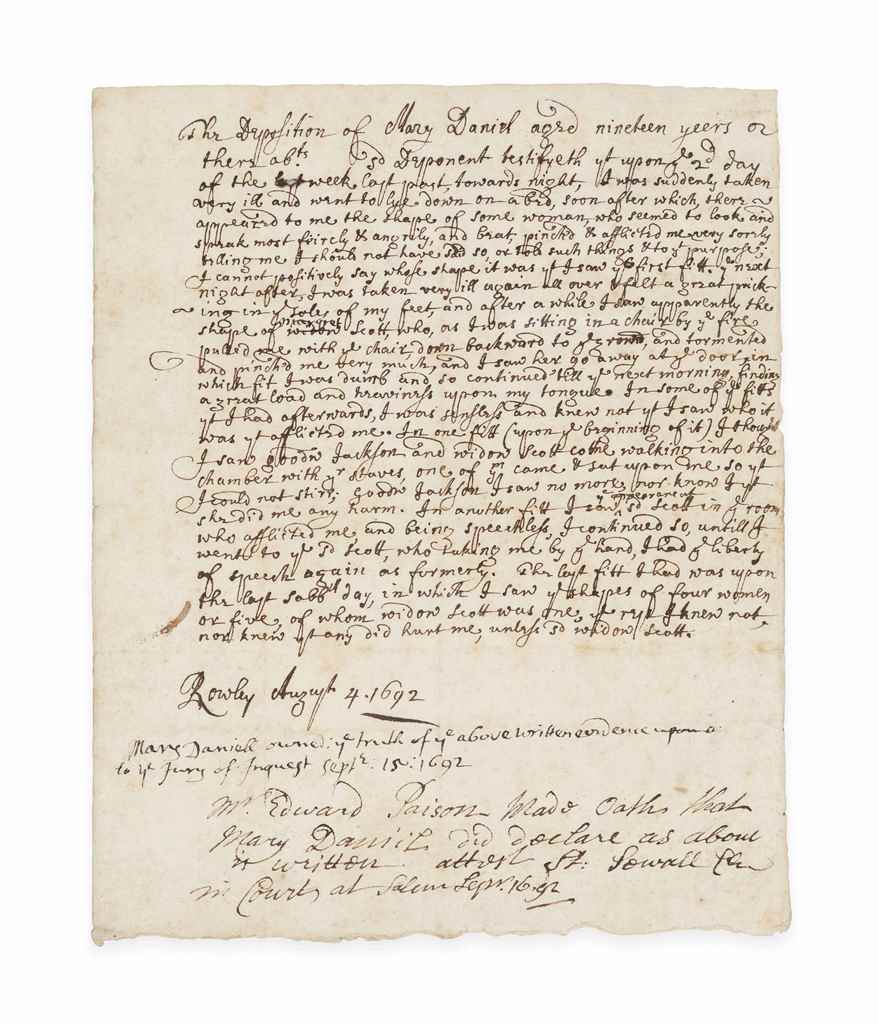 The Deposition of Mary Daniel aged nineteen yeers or
there abts. sd Deponent testifyeth yt upon ye 2d day
of the week last past, towards night, I was suddenly taken
very ill and went to lye down on a bed, soon after which, there
appeared to me the shape of some woman, who seemed to look and
speak most feircly & angrily, and beat, pinch'd & afflicted me very sorely
telling me I should not have said so, or told such things & to yt purpose,
I cannot positively say whose shape it was yt I saw ye first fitt. ye next
night after, I was taken very ill again all over & felt a great prick-
ing in ye soles of my feet, and after a while I saw apparently the
shape of Margret Scott, who, as I was sitting in a chair by ye fire
pulled me with ye chair, down backward to ye ground, and tormented
and pinch'd me very much, and I saw her go away at ye door, in
which fit I was dumb and so continued till ye next morning, finding
a great load and heaviness upon my tongue. In some of ye fitts
yt I had afterwards, I was sensless and knew not yt I saw who it
was yt afflicted me. In one fitt (upon ye beginning of it) I thought
I saw goodw Jackson and widow Scott come walking into the
chamber with yr staves, one of ym came & sat upon me so yt
I could not stirr; Goodw Jackson I saw no more, nor know I yt
she did me any harm. In another fitt I saw ye appearance of sd Scott in ye room
who afflicted me, and being speechless, I continued so, untill I
went to ye sd Scott, who taking me by ye hand, I had ye liberty
of speech again as formerly. The last fitt I had was upon
the last Sabbth day, in which I saw ye shapes of four women
or five, of whom widow Scott was one, ye rest I knew not,
nor knew yt any did hurt me, unless sd widow Scott.
Rowley August 4. 1692
Mary Daniell owned: ye truth of ye above written evidence
to ye Jury of Inquest Septr: 15: 1692
Mr Edward Paison Made Oath that
Mary Daniil did declare as above
is written attest St: Sewall Cler
in Court at Salem Sepr. 16. 92